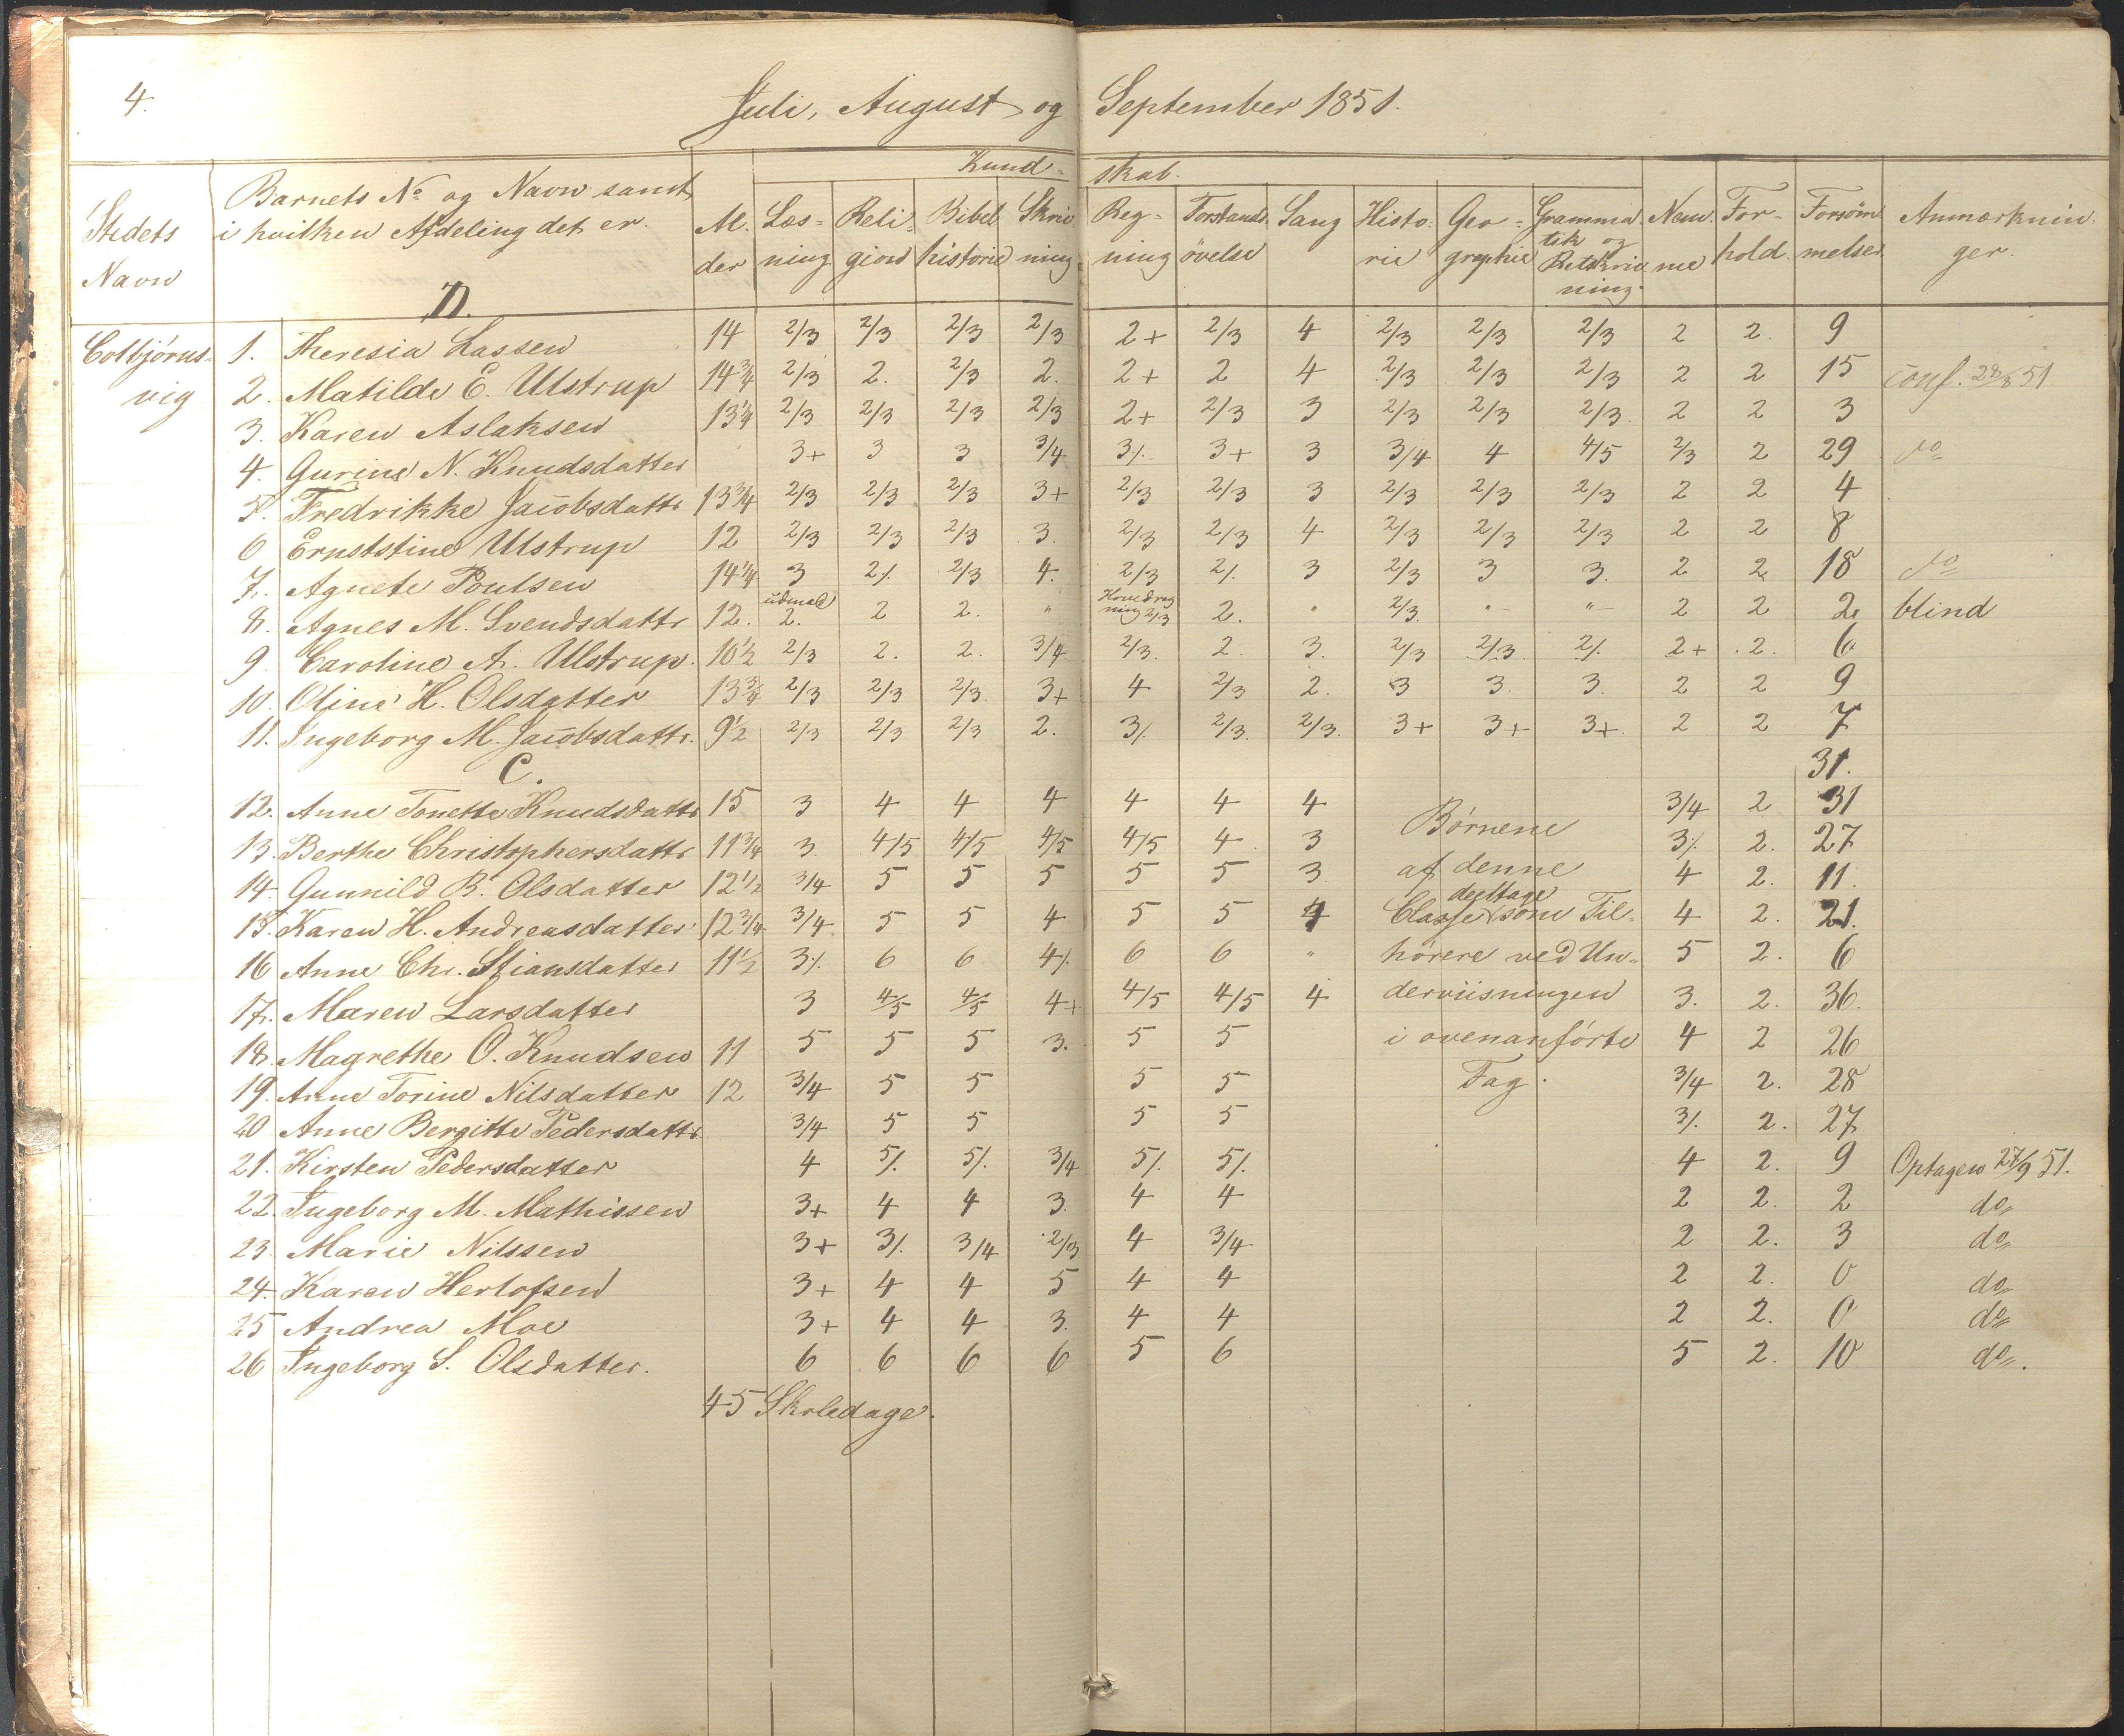 4.
Juli, August og September 1851.
Kund- skab.
Stedets Navn
Barnets No og Navn samt i hvilken Afdeling det er.
Al- der
Læs- ning
Reli- gion
Bibel historie
Skriv- ning
Reg- ning
Forstands- øvelse
Sang
Histo- rie
Geo- graphie
Gramma- tik og Retskriv- ning.
Nem- me
For- hold.
Forsøm- melser
Anmærknin- ger.
D.
Colbjørns- vig
1. Theresia Lassen 14 2/3 2/3 2/3 2/3 2+ 2/3 4 2/3 2/3 2/3 2 2. 9
2. Matilde E. Ulstrup 14 3/4 2/3 2. 2/3 2. 2+ 2 4 2/3 2/3 2/3 2 2 15 conf. 28/8 51
3. Karen Aslaksen 13 1/4 2/3 2/3 2/3 2/3 2+ 2/3 3 2/3 2/3 2/3. 2 2 3
4. Gurine N. Knudsdatter 3+ 3 3 3/4 3./. 3+ 3 3/4 4 4/5 2/3 2 29 do
5. Fredrikke Jacobsdattr 13 3/4 2/3 2/3 2/3 3+ 2/3 2/3 3 2/3 2/3 2/3 2 2 4
6 Ernststine Ulstrup 12 2/3 2/3 2/3 3. 2/3 2/3 4 2/3 2/3 2/3 2 2 8
7. Agnete Poulsen 14 1/4 3 2./. 2/3 4. 2/3 2./. 3 2/3 3 3. 2 2 18 do
8. Agnes M. Svendsdattr 12. udenad 2. 2 2. " Hovedreg ning 2/3 2. " 2/3. " " 2 2 2 blind
9. Caroline A. Ulstrup. 10 1/2 2/3 2. 2. 3/4 2/3. 2. 3. 2/3 2/3. 2./. 2+ 2. 6
10. Oline H. Olsdatter 13 3/4 2/3 2/3 2/3. 3+ 4 2/3 2. 3 3. 3. 2 2 9
11. Ingeborg M. Jacobsdattr. 9 1/2 2/3 2/3 2/3 2. 3./. 2/3. 2/3. 3+ 3+ 3+. 2 2 7
C. 31.
12. Anne Tonette Knudsdattr 15 3 4 4 4 4 4 4 Børnene 3/4 2 31
13. Berthe Christophersdattr 11 3/4 3. 4/5 4/5 4/5 4/5 4. 3 3./. 2. 27
14. Gunnild B. Olsdatter 12 1/2 3/4 5 5 5 5 5 3 af denne 4 2. 11.
15. Karen H. Andreasdatter 12 3/4 3/4 5 5 4 5 5 4 Classe deeltage som Til- 4 2. 21.
16 Anne Chr. Stiansdatter 11 1/2 3./. 6 6 4./. 6 6 " hørere ved Un- 5 2. 6
17. Maren Larsdatter 3 4/5 4/5 4+ 4/5 4/5 4 derviisningen 3. 2. 36
18. Magrethe O. Knudsen 11 5 5 5 3. 5 5 i ovenanførte 4 2 26
19. Anne Torine Nilsdatter 12 3/4 5 5 5 5 Fag. 3/4 2. 28
20 Anne Bergitte Pedersdattr 3/4 5 5 5 5 3./. 2. 27
21. Kirsten Pedersdatter 4 5./. 5./. 3/4 5./. 5./. 4 2. 9 Optagen 27/9 51.
22. Ingeborg M. Mathissen 3+ 4 4 3. 4 4 2 2. 2 do
23. Marie Nilssen 3+ 3./. 3/4 2/3 4 3/4 2 2. 3 do
24. Karen Herlofsen 3+ 4 4 5 4 4 2 2. 0 do
25 Andrea Moe 3+ 4 4 3. 4 4 2 2. 0 do
26 Ingeborg S. Olsdatter. 6 6 6 6 5 6 5 2. 10 do.
45 Skoledage.